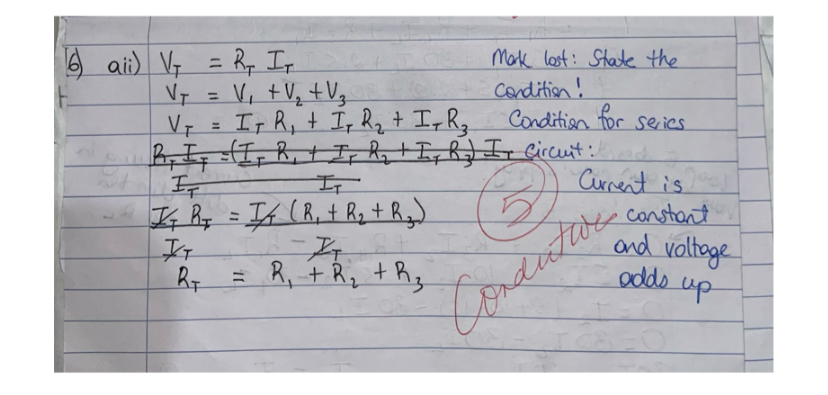 6) aii) V_T = R_T I_T Mark lost: State the
V_T = V_1 + V_2 + V_3 Condition!
V_T = I_T R_1 + I_T R_2 + I_T R_3 Condition for series
R_T I_T = (I_T R_1 + I_T R_2 + I_T R_3) I_T Circuit:
I_T I_T Current is
I_T R_T = I_T (R_1 + R_2 + R_3) 5 constant
I_T I_T and voltage
R_T = R_1 + R_2 + R_3 adds up